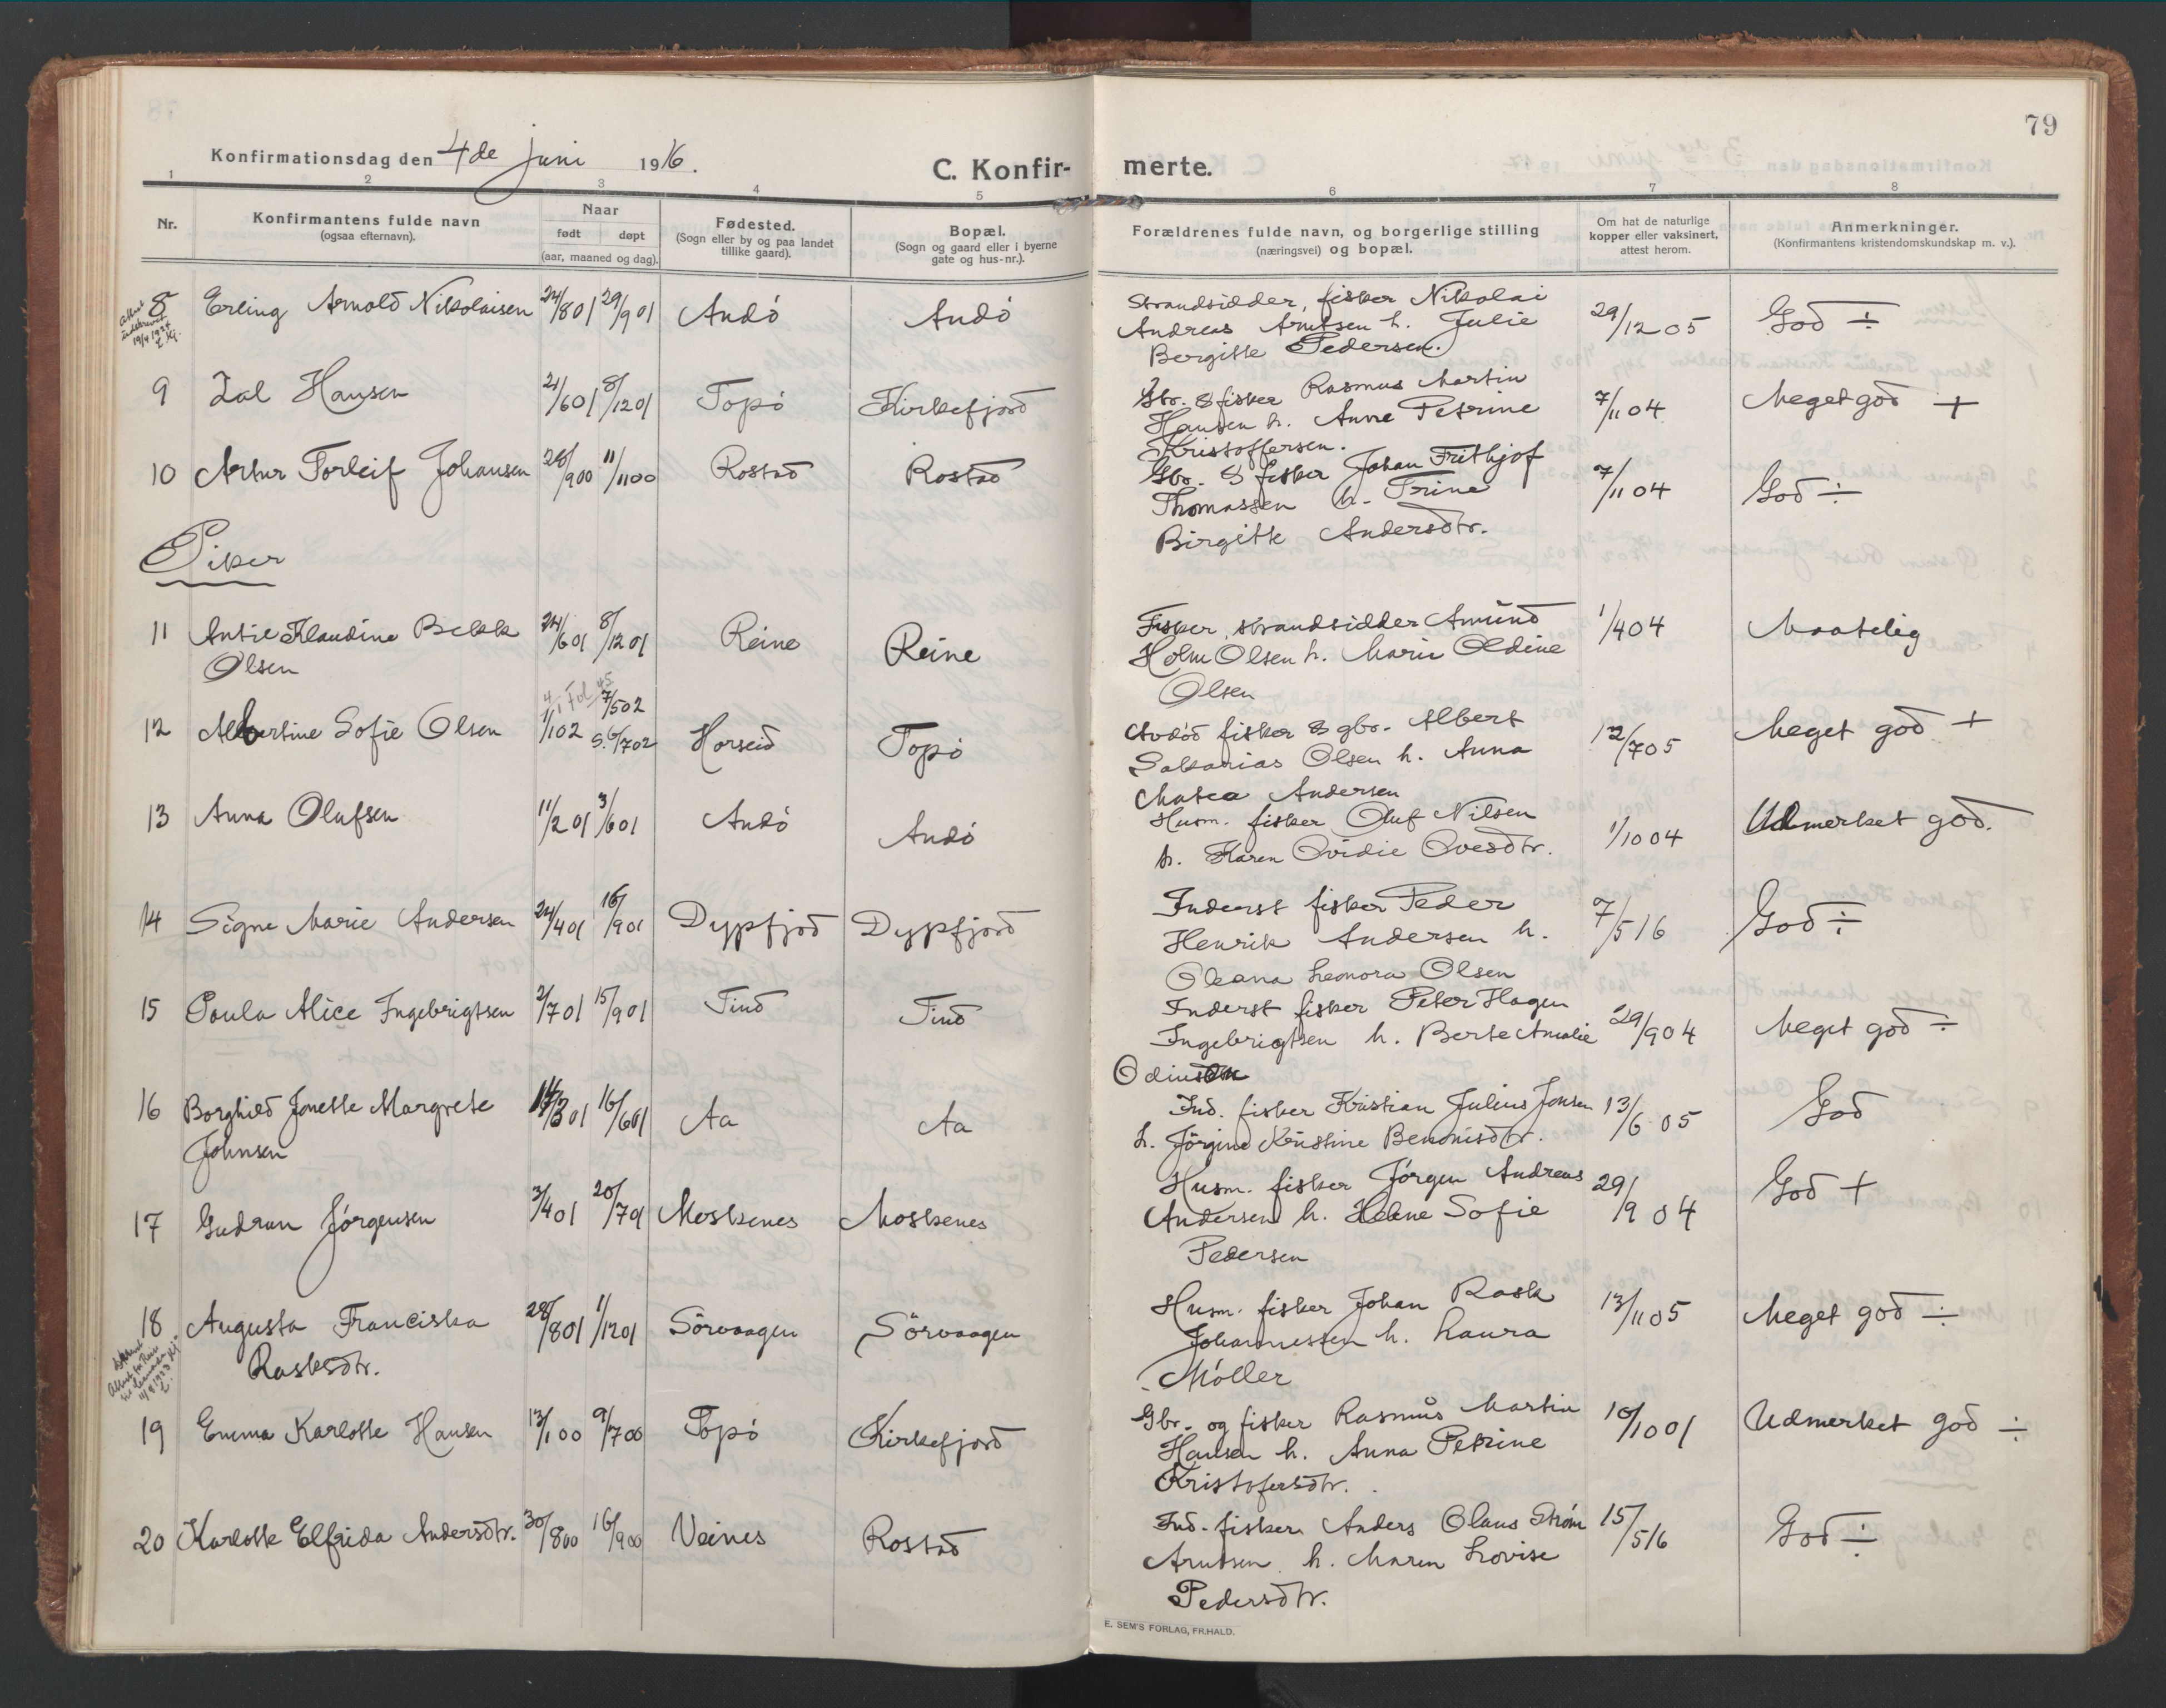 79
Konfirmationsdag den 4de juni 1916.
C. Konfir- merte.
1 2 3 4 5 6 7 8
Nr.
Konfirmantens fulde navn
(ogsaa efternavn).
Naar
født døpt
(aar, maaned og dag).
Fødested.
(Sogn eller by og paa landet
tillike gaard).
Bopæl.
(Sogn og gaard eller i byerne
gate og hus-nr.).
Forældrenes fulde navn, og borgerlige stilling
(næringsvei) og bopæl.
Om hat de naturlige
kopper eller vaksinert,
attest herom.
Anmerkninger.
(Konfirmantens kristendomskundskap m. v.).
8 Erling Arnold Nikolaisen 24/8 01 29/9 01 Andó Andó
Strandsidder, fisker Nikolai
Andreas Arntsen h. Julie
Bergitte Pedersen.
29/12 05 God ÷
9 Hansen 21/6 01 8/12 01 Topó Kirkefjord
Gbr. & fisker Rasmus Martin
Hansen h. Anne Petrine
Kristoffersen.
7/11 04 Meget god +
10 Artur Torleif Johansen 28/9 00 11/11 00 Rostad Rostad
Gbr. & fisker Johan Frithjof
Thomassen h. Trine
Birgitte Andersdtr.
7/11 04 God ÷
Piker
11 Antie Klaudine Bekk
Olsen
24/6 01 8/12 01 Reine Reine
Fisker, strandsidder Amund
Holm Olsen h. Marie Oldine
Olsen
1/4 04 Maatelig
12 Albertine Sofie Olsen 1/1 02 7/5 02 S. 6/7 02 Horseid Topó
Avdód fisker & gbr. Albert
Sakarias Olsen h. Anna
Matea Andersen
12/7 05 Meget god +
13 Anna Olufsen 11/2 01 3/6 01 Andó Andó
Husm. fisker Oluf Nilsen
h. Karen Ovidie Ovesdtr.
1/10 04 Udmerket god.
14 Signe Marie Andersen 24/4 01 16/9 01 Dypfjord Dypfjord
Inderst fisker Peder
Henrik Andersen h.
Oleana Leonora Olsen
7/5 16 God ÷
15 Paula Alice Ingebrigtsen 2/7 01 15/9 01 Tind Tind
Inderst fisker Peter Hagen
Ingebrigtsen h. Berte Amalie
29/9 04 Meget god ÷
16 Borghild Jonette Margrete
Johnsen
16/6 01 Aa Aa
Ind. fisker Kristian Julius Jonsen
h. Jörgine Kristine Benonisdtr.
13/6 05 God
17 Gudrun Jórgensen 3/4 01 20/7 01 Moskenes Moskenes
Husm. fisker Jórgen Andreas
Andersen h. Helene Sofie
Pedersen
29/9 04 God +
18 Augusta Franciska
Rasksdtr.
28/8 01 1/12 01 Sörvaagen Sörvaagen
Husm. fisker Johan Rask
Johannessen h. Laura
Móller
13/11 05 Meget god ÷
19 Emma Karlotte Hansen 13/1 00 9/7 00 Topó Kirkefjord
Gbr. og fisker Rasmus Martin
Hansen h. Anna Petrine
Kristofersdtr.
10/10 01 Udmerket god ÷
20 Karlotte Elfrida Andersdtr. 30/8 00 16/9 00 Veines Rostad
Ind. fisker Anders Olaus Strøm
Arntsen h. Maren Lovise
Pedersdtr.
15/5 16 God ÷
E. SEM'S FORLAG, FR.HALD.